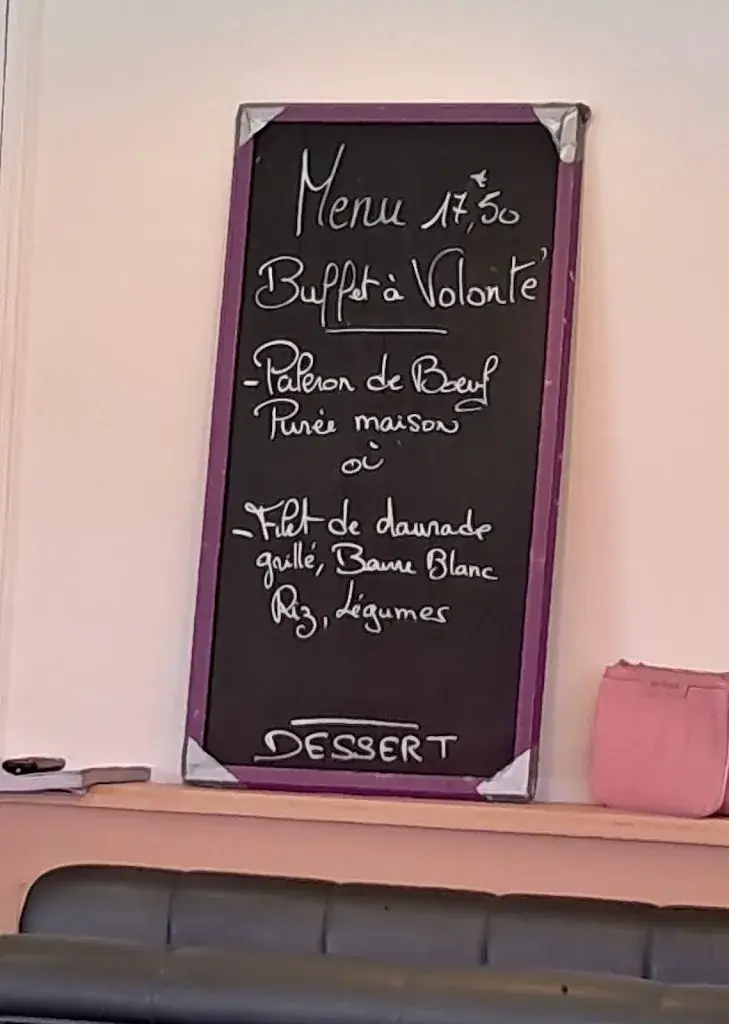 Menu 17,€50
Buffet à Volonté
-Paleron de Bœuf
Purée maison
où
-Filet de daurade
grillé, Baurre Blanc
Riz, Légumes
DESSERT